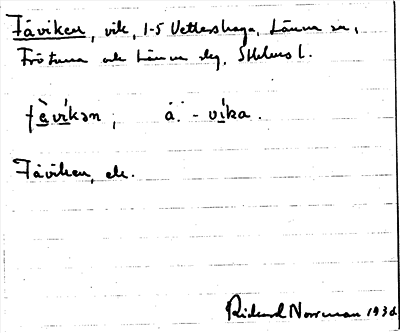 Fåviken, vik, 1-5 Vettershaga, Länna sn,
Frötuna och Länna skg, Sthlms l.
få̀víkən; å̀ - vika.
Fåviken, ek.
Rickard Norrman 193